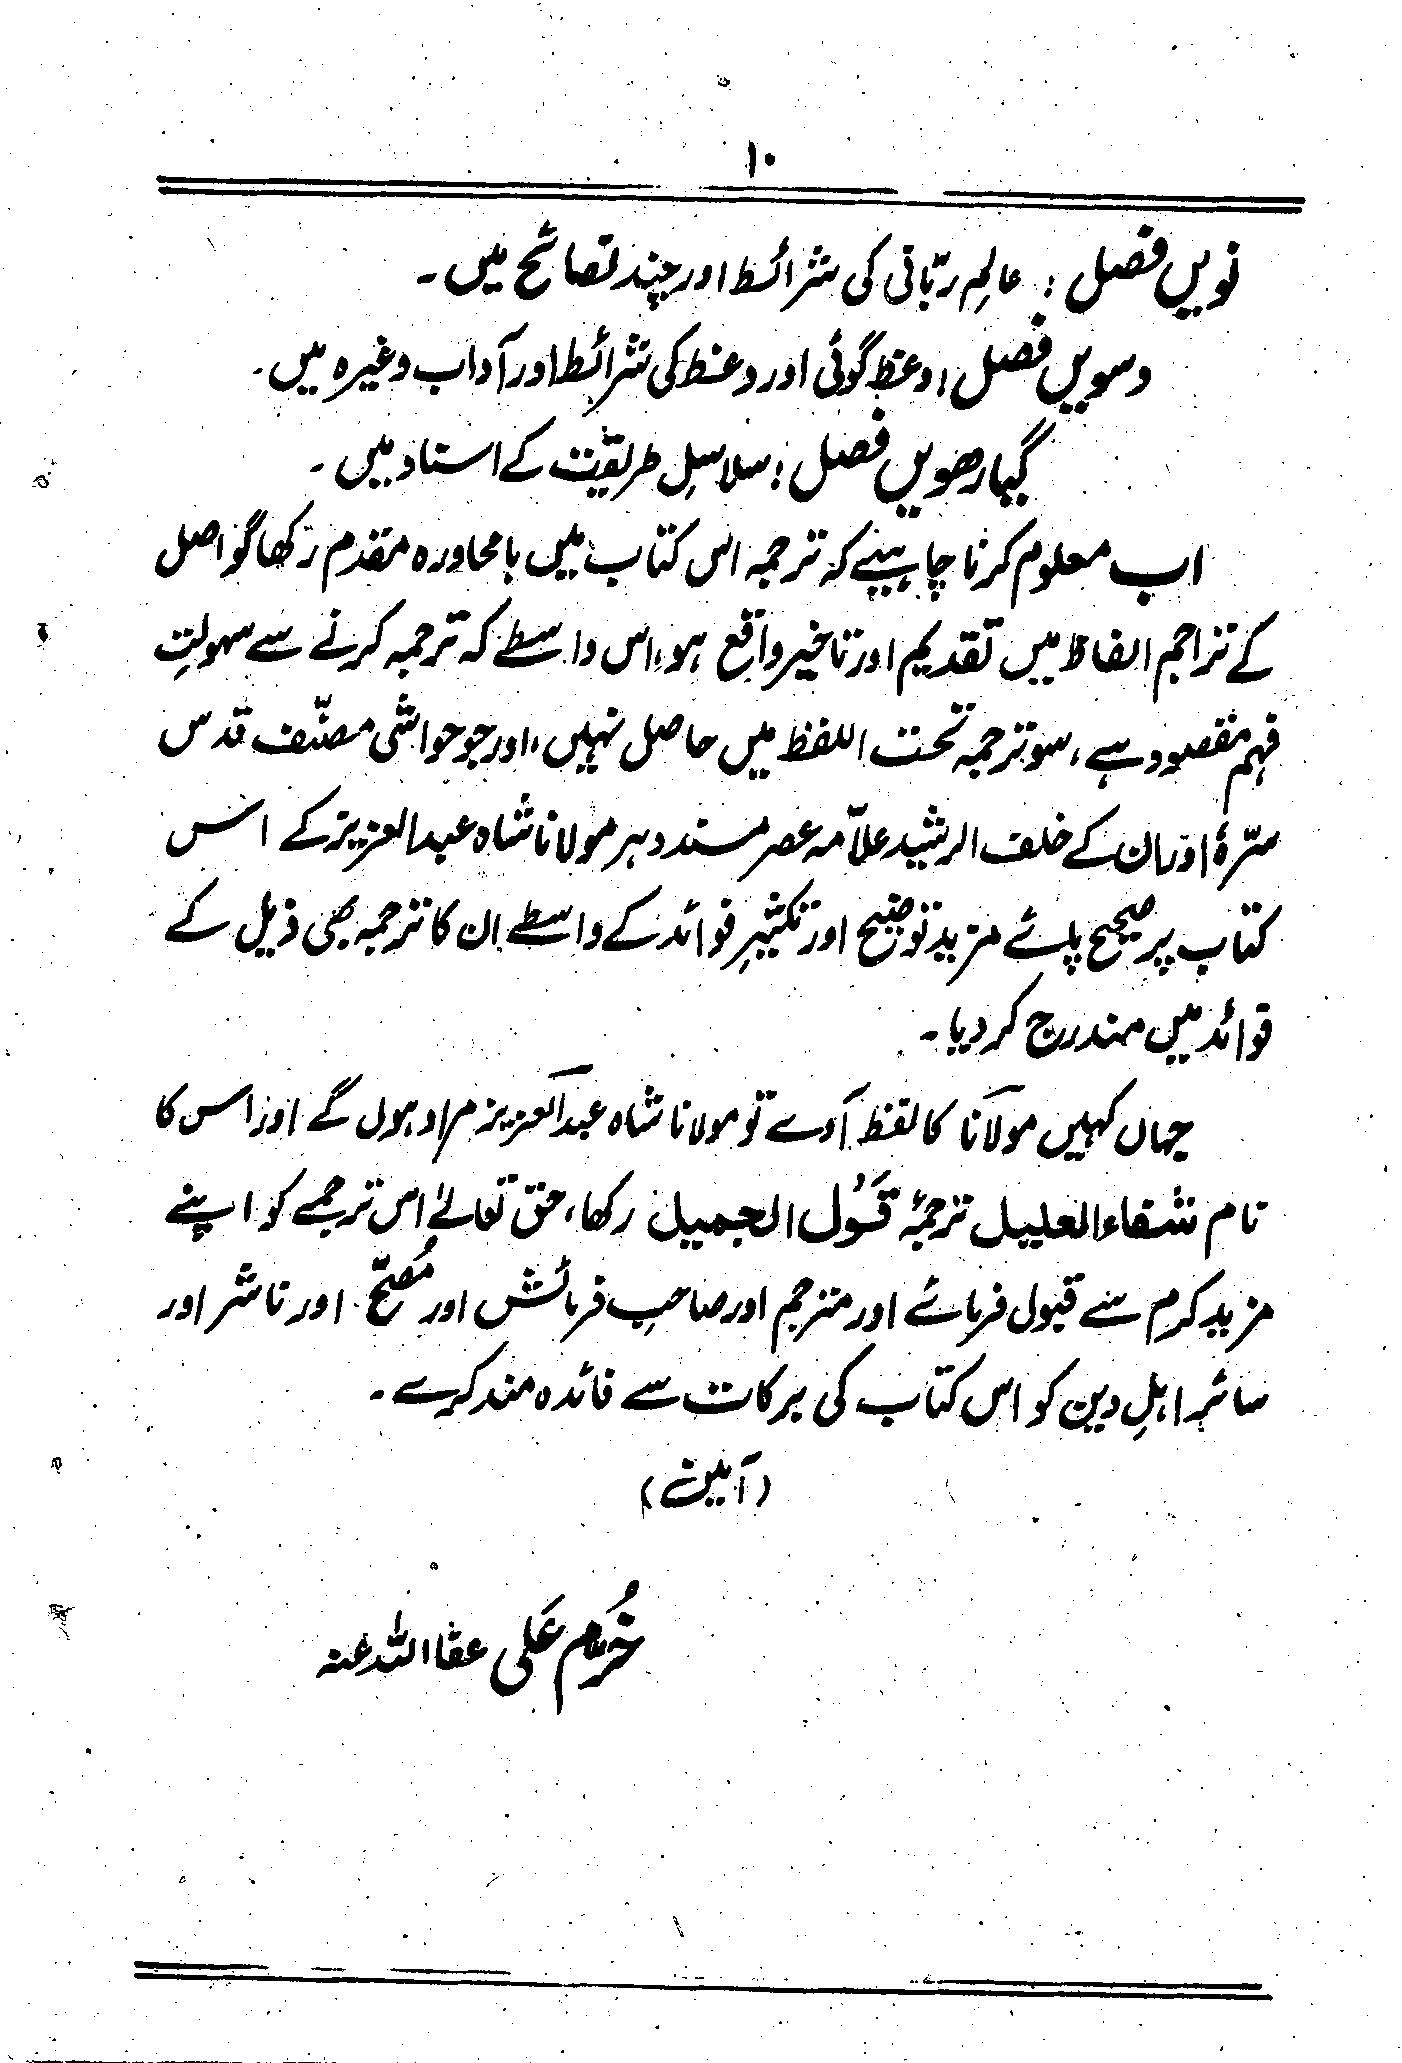 ۱۰
نویں فصل : عالمِ ربّانی کی شرائط اور چند نصائح میں۔
دسویں فصل : وعظ گوئی اور وعظ کی شرائط اور آداب وغیرہ میں۔
گیارھویں فصل : سلاسلِ طریقت کے اسناد میں۔
اب معلوم کرنا چاہیئے کہ ترجمہ اس کتاب میں بامحاورہ مقدم رکھا گو اصل
کے تراجم الفاظ میں تقدیم اور تاخیر واقع ہو، اس واسطے کہ ترجمہ کرنے سے سہولتِ
فہم مقصود ہے، سو ترجمہ تحت اللفظ میں حاصل نہیں، اور جو حواشی مصنّف قدس
سرّہٗ اور ان کے خلف الرشید علاّمہ عصر مسند دہر مولانا شاہ عبدالعزیز کے اس
کتاب پر صحیح پائے مزید توضیح اور تکثیرِ فوائد کے واسطے ان کا ترجمہ بھی ذیل کے
فوائد میں مندرج کر دیا۔
جہاں کہیں مولانا کا لفظ آوے تو مولانا شاہ عبدالعزیز مراد ہوں گے اور اس کا
نام شفاء العلیل ترجمۂ قَوْل الجمیل رکھا، حق تعالےٰ اس ترجمے کو اپنے
مزید کرم سے قبول فرمائے اور مترجم اور صاحبِ فرمائش اور مُصحّح اور ناشر اور
سائر اہلِ دین کو اس کتاب کی برکات سے فائدہ مند کرے۔
(آمین)
خُرم عَلی عفا اللہ عنہ